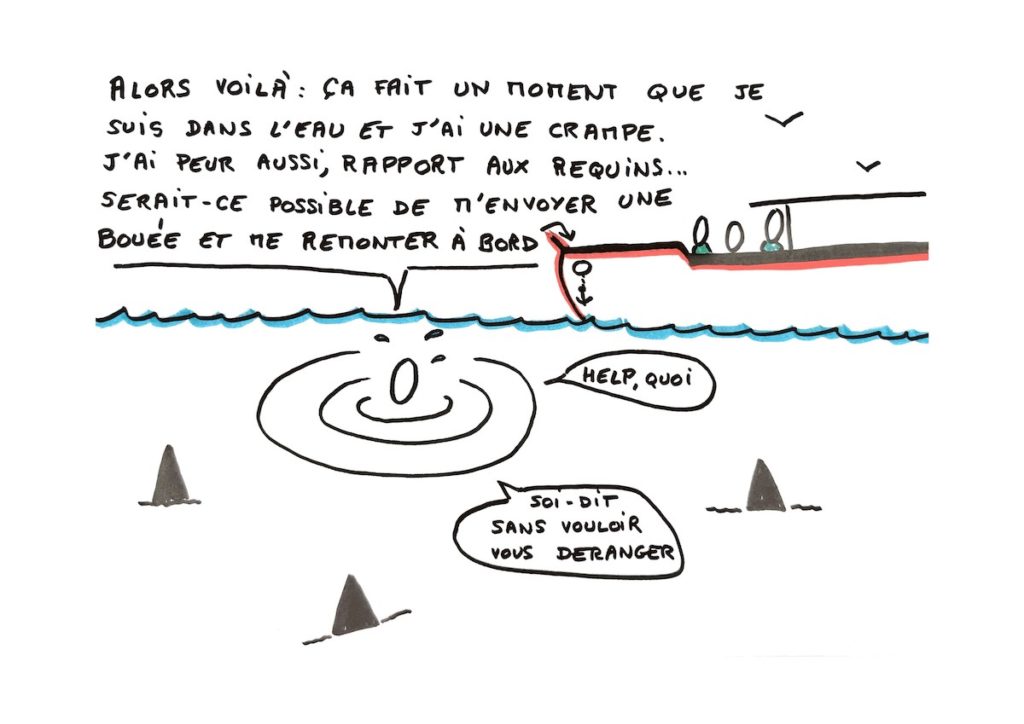 ALORS VOILÀ : ÇA FAIT UN MOMENT QUE JE
SUIS DANS L'EAU ET J'AI UNE CRAMPE.
J'AI PEUR AUSSI, RAPPORT AUX REQUINS...
SERAIT-CE POSSIBLE DE M'ENVOYER UNE
BOUÉE ET ME REMONTER À BORD
HELP, QUOI
SOI-DIT
SANS VOULOIR
VOUS DERANGER